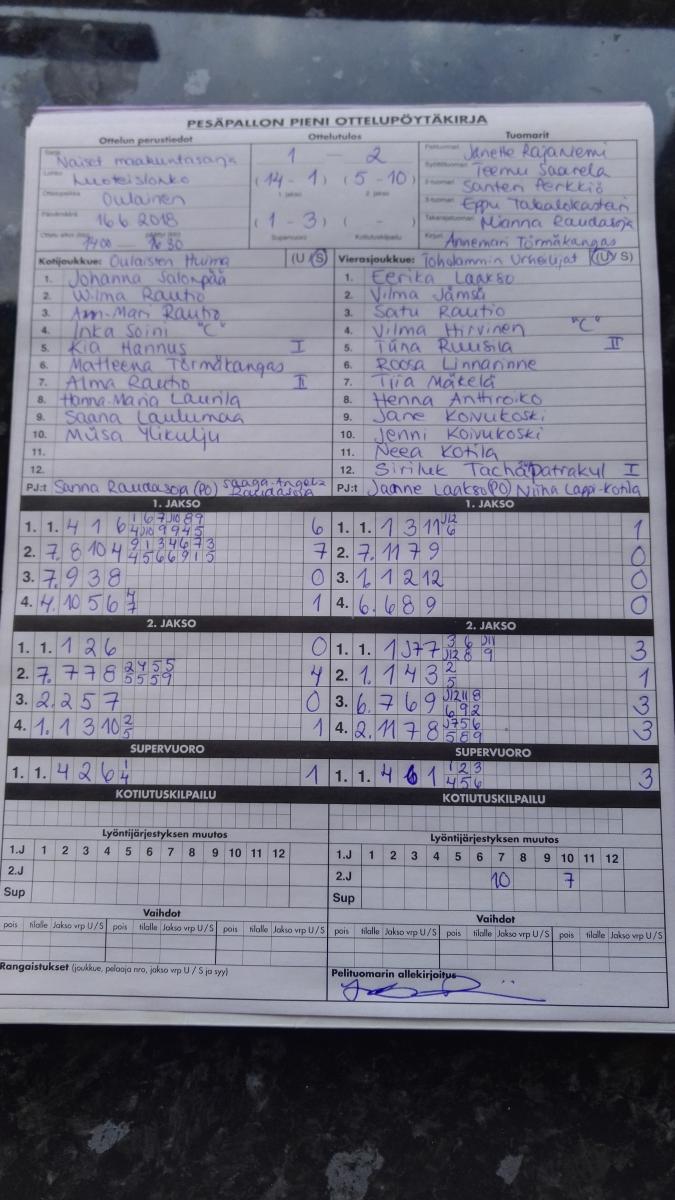 PESÄPALLON PIENI OTTELUPÖYTÄKIRJA
Ottelun perustiedot Ottelutulos Tuomarit
Naiset maakuntasarja 1 — 2 Janette Rajaniemi
Luoteislohko (14 - 1) (5 - 10) Teemu Saarela
Oulainen Santeri Perkkiö
16.6.2018 (1 - 3) ( - ) Eppu Takalokastari
Supervuoro Kotiutuskilpailu Minna Raudasoja
1400 — 1630 Annemari Törmäkangas
Kotijoukkue: Oulaisten Huima (U S) Vierasjoukkue: Toholammin Urheilijat (U S)
1. Johanna Salonpää 1. Eerika Laakso
2. Wilma Rautio 2. Vilma Jämsä
3. Ann-Mari Rautio 3. Satu Rautio
4. Inka Soini "C" 4. Vilma Hirvinen "C"
5. Kia Hannus I 5. Tiina Ruusila II
6. Matleena Törmäkangas 6. Roosa Linnarinne
7. Alma Rautio II 7. Tiia Mäkelä
8. Hanna-Maria Laurila 8. Henna Anthroiko
9. Saana Laulumaa 9. Jane Koivukoski
10. Miisa Ylikulju 10. Jenni Koivukoski
11. 11. Neea Kotila
12. 12. Siriluk Tachapatrakul I
PJ:t Sanna Raudasoja (PO) Saaga-Angela Raudasoja PJ:t Janne Laakso (PO) Niina Lappi-Kotila
1. JAKSO 1. JAKSO
1. 1. 4 1 6 6 1. 1. 1 3 11 J12 6 1
2. 7. 8 10 4 9 1 3 4 6 7 3 4 5 6 6 9 1 5 7 2. 7. 11 7 9 0
3. 7. 9 3 8 0 3. 1. 1 2 12 0
4. 4. 10 5 6 4 7 1 4. 6. 6 8 9 0
2. JAKSO 2. JAKSO
1. 1. 1 2 6 0 1. 1. 1 J7 7 3 6 J11 J12 8 9 3
2. 7. 7 7 8 2 4 5 5 5 5 5 9 4 2. 1. 1 4 3 2 5 1
3. 2. 2 5 7 0 3. 6. 7 6 9 J12 11 8 6 9 2 3
4. 1. 1 3 10 2 5 1 4. 2. 11 7 8 J7 5 6 5 8 9 3
SUPERVUORO SUPERVUORO
1. 1. 4 2 6 1 4 1 1. 1. 4 6 1 1 2 3 4 5 6 3
KOTIUTUSKILPAILU KOTIUTUSKILPAILU
Lyöntijärjestyksen muutos Lyöntijärjestyksen muutos
1.J 1 2 3 4 5 6 7 8 9 10 11 12 1.J 1 2 3 4 5 6 7 8 9 10 11 12
2.J 2.J 10 7
Sup Sup
Vaihdot Vaihdot
pois tilalle Jakso vrp U/S pois tilalle Jakso vrp U/S pois tilalle Jakso vrp U/S pois tilalle Jakso vrp U/S pois tilalle Jakso vrp U/S pois tilalle Jakso vrp U/S
Rangaistukset (joukkue, pelaaja nro, jakso vrp U / S ja syy) Pelituomarin allekirjoitus